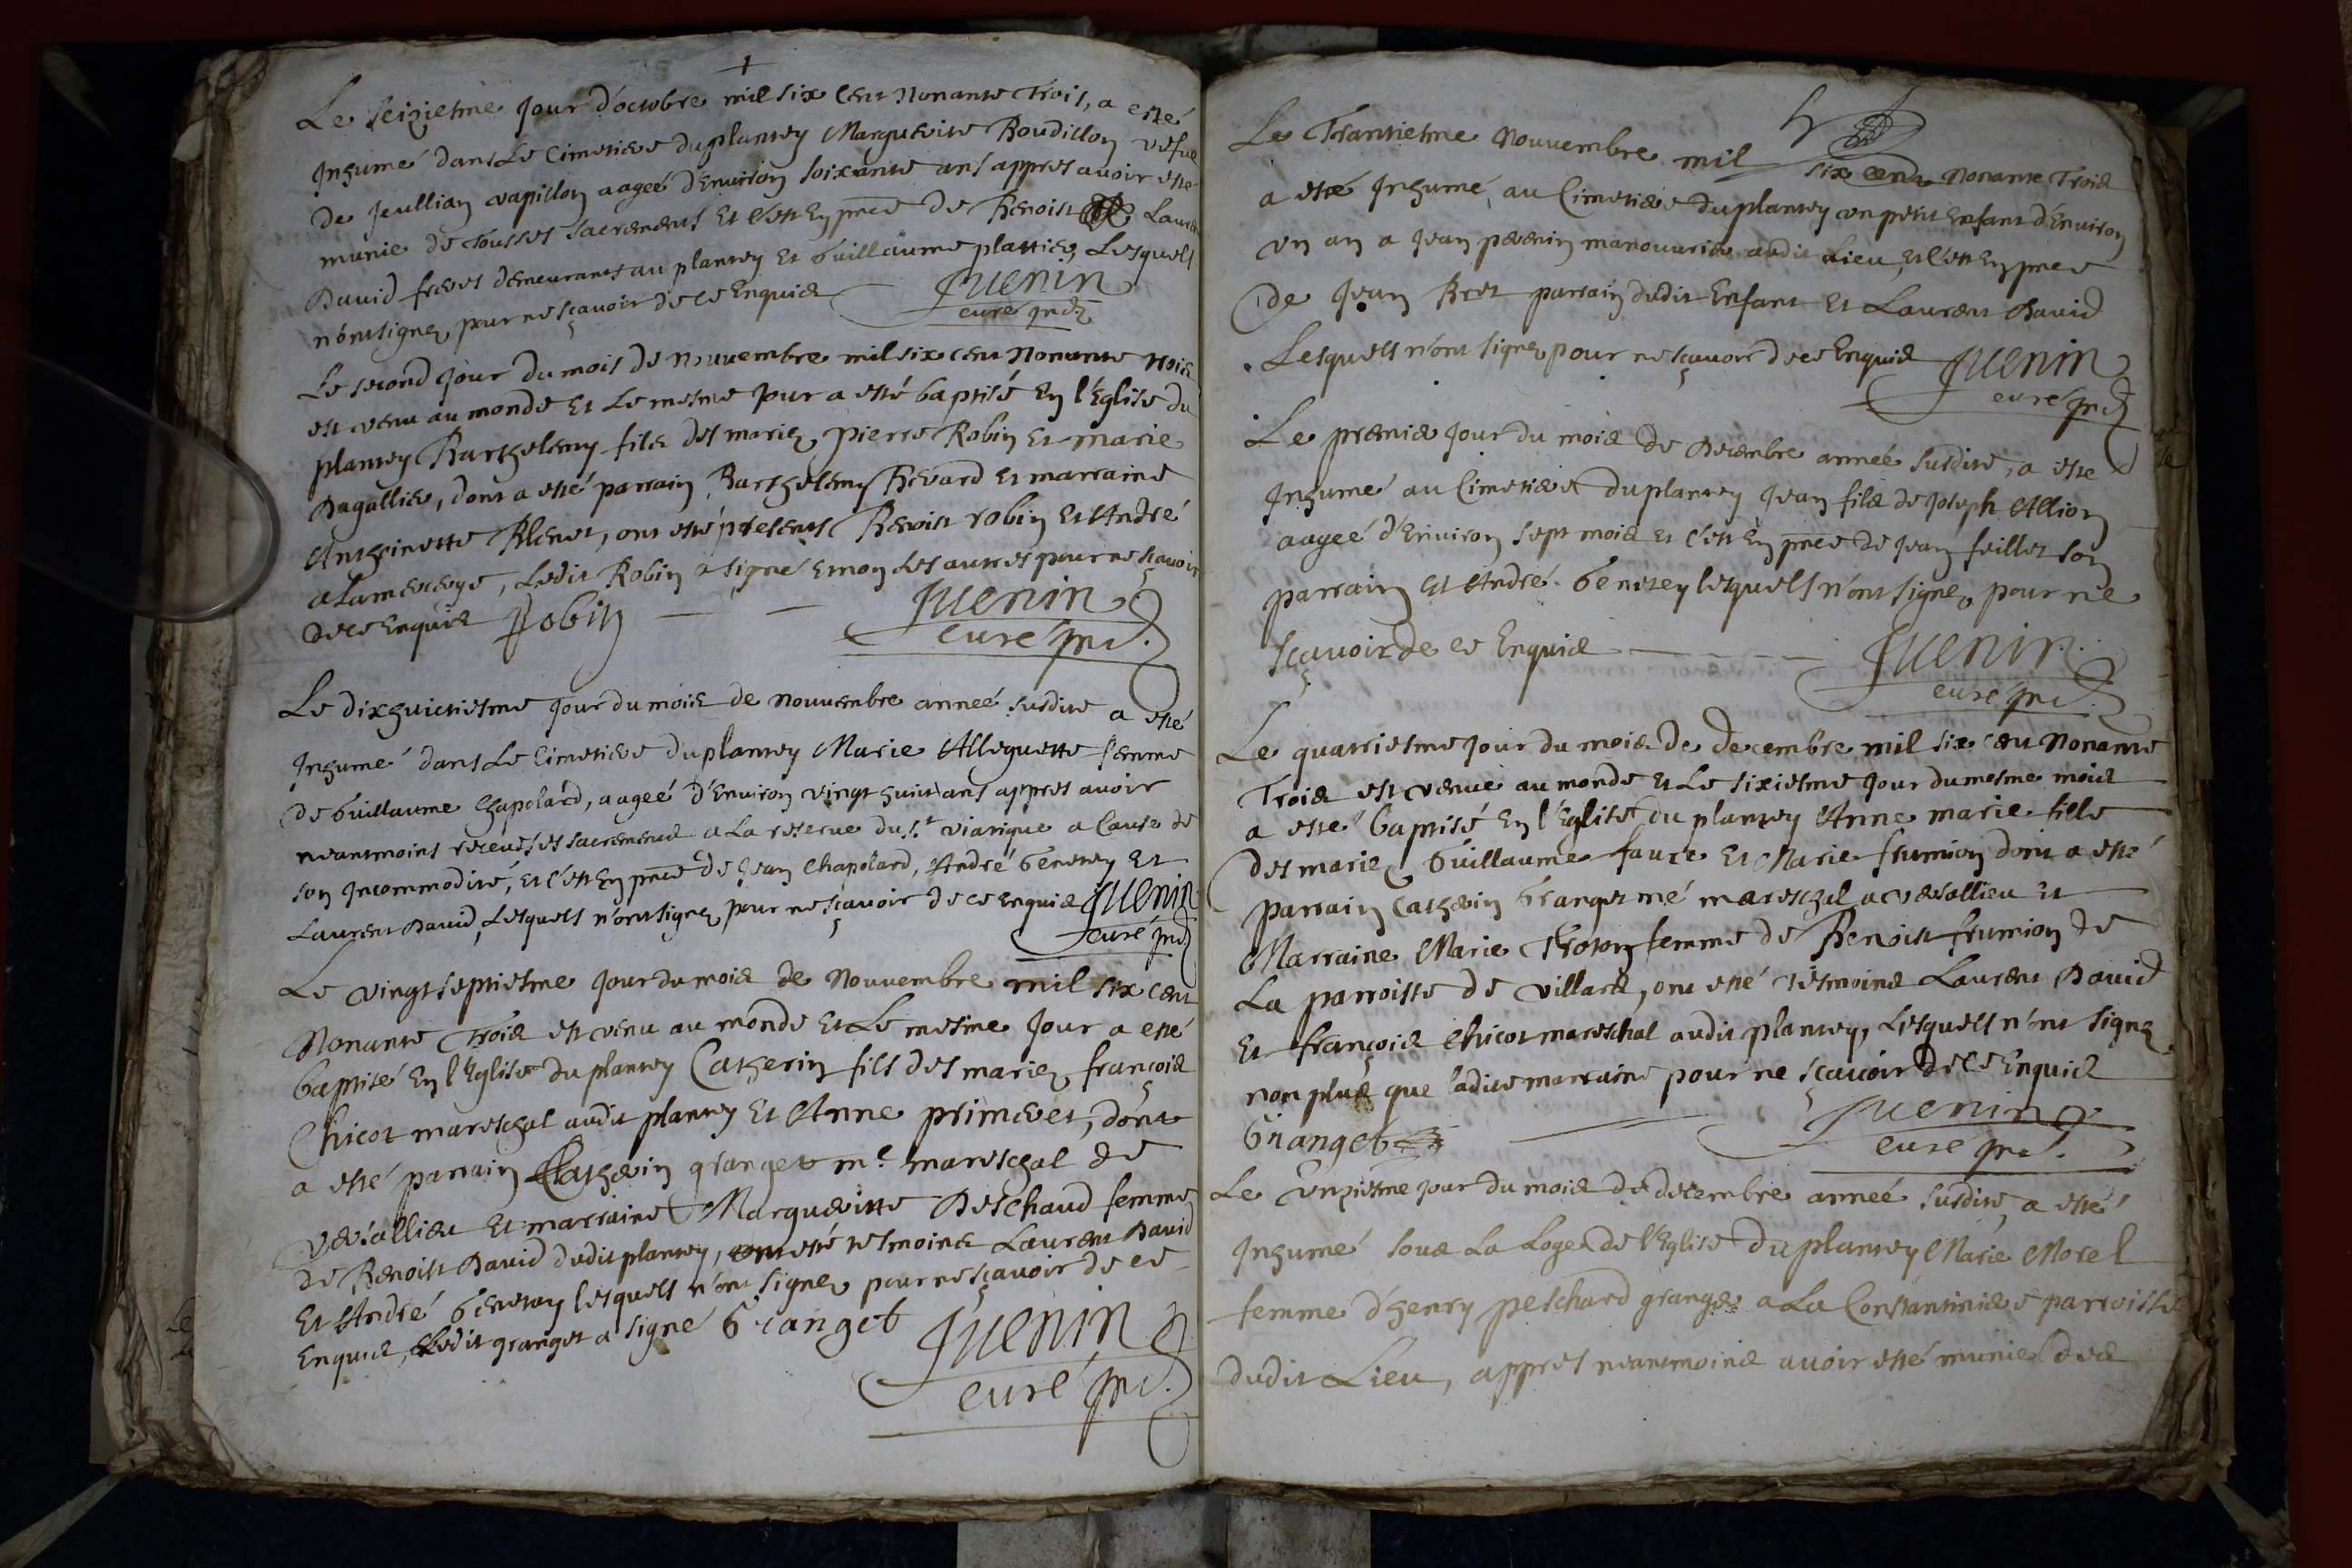 Le seiziesme jour d'octobre mil six cent nonante trois, a esté
Inhumé dans Le Cimetiere du plantey Marguerite Boudillon vefue
de Jeullian vapillon aageé d'Environ soixante ans appres avoir esté
munie de tous ses sacrements Et c'est En pnce de Benoist Laurent
David freres demeurants au plantey Et Guillaume plattier, Lesquels
n'ont signez pour ne sçavoir de ce Enquis Juenin
curé
Le second jour du mois de Nouvembre mil six cent Nonante trois
est venu au monde Et Le mesme jour a esté baptisé En l'Eglise du
plantey Barthelemy fils des mariez pierre Robin Et marie
Dagallier, dont a esté parrain Barthelemy Bevard Et marraine
Anthoinette Blenet, ont esté presents Benoist robin Et André
Lamercerye, Ledit Robin a signé Et non Les autres pour ne sçavoir
de ce Enquis Robin Juenin
curé
Le dixhuictiesme jour du mois de Nouvembre anneé susdite a esté
Inhumé dans Le Cimetiere du plantey Marie Alleguette femme
de Guillaume Chapolard, aageé d'Environ vingt huict ans appres avoir
neantmoins receu ses sacrements a La reserve du st viatique a Cause de
son Incommodité, Et c'est En pnce de Jean Chapolard, André Genetey Et
Laurent David, Lesquels n'ont signez pour ne sçavoir de ce Enquis Juenin
curé
Le vingt septiesme jour du mois de Nouvembre mil six cent
Nonante Trois est venu au monde Et Le mesme jour a esté
baptisé En l'Eglise du plantey Catherin fils des mariez françois
Chicot mareschal audit plantey Et Anne primevet, dont
a esté parrain Catherin granget me mareschal de
versallieu Et marraine Margueritte Deschaud femme
de Benoist David dudit plantey, ont esté tesmoins Laurent David
Et André Genetey lesquels n'ont signez pour ne sçavoir de ce
Enquis, Ledit granget a signé Granget Juenin
curé
Le Trantiesme Nouvembre mil six cent Nonante Trois
a esté Inhumé, au Cimetiere du plantey un petit Enfant d'Environ
un an a Jean perenin manouvrier audit Lieu, Et c'est En pnce
de Jean Bret parrain dudit Enfant Et Laurent David
Lesquels n'ont signez pour ne sçavoir de ce Enquis Juenin
curé
Le premier jour du mois de Decembre anneé susdite, a esté
Inhumé au Cimetiere du plantey Jean fils de Joseph Allion
aageé d'Environ sept mois Et c'est En pnce de Jean feillet son
parrain Et André Genetey lesquels n'ont signez pour ne
sçavoir de ce Enquis Juenin
curé
Le quatriesme jour du mois de decembre mil six cent Nonante
Trois est venue au monde Et Le sixiesme jour du mesme mois
a esté baptisé En l'Eglise du plantey Anne marie fille
des mariez Guillaume faure Et Marie frumion dont a esté
parrain Catherin Granget me mareschal a versallieu Et
Marraine Marie Troton femme de Benoist frumion de
La parroisse de villars, ont esté tesmoins Laurent David
Et françois Chicot mareschal audit plantey, Lesquels n'ont signez
non plus que ladite marraine pour ne sçavoir de ce Enquis
Granget Juenin
curé
Le Onziesme jour du mois de decembre anneé susdite, a esté
Inhumé sous La Loge de l'Eglise du plantey Marie Morel
femme d'henry peschard granger a La Constantiniere parroisse
dudit Lieu, appres neantmoins avoir esté munie des